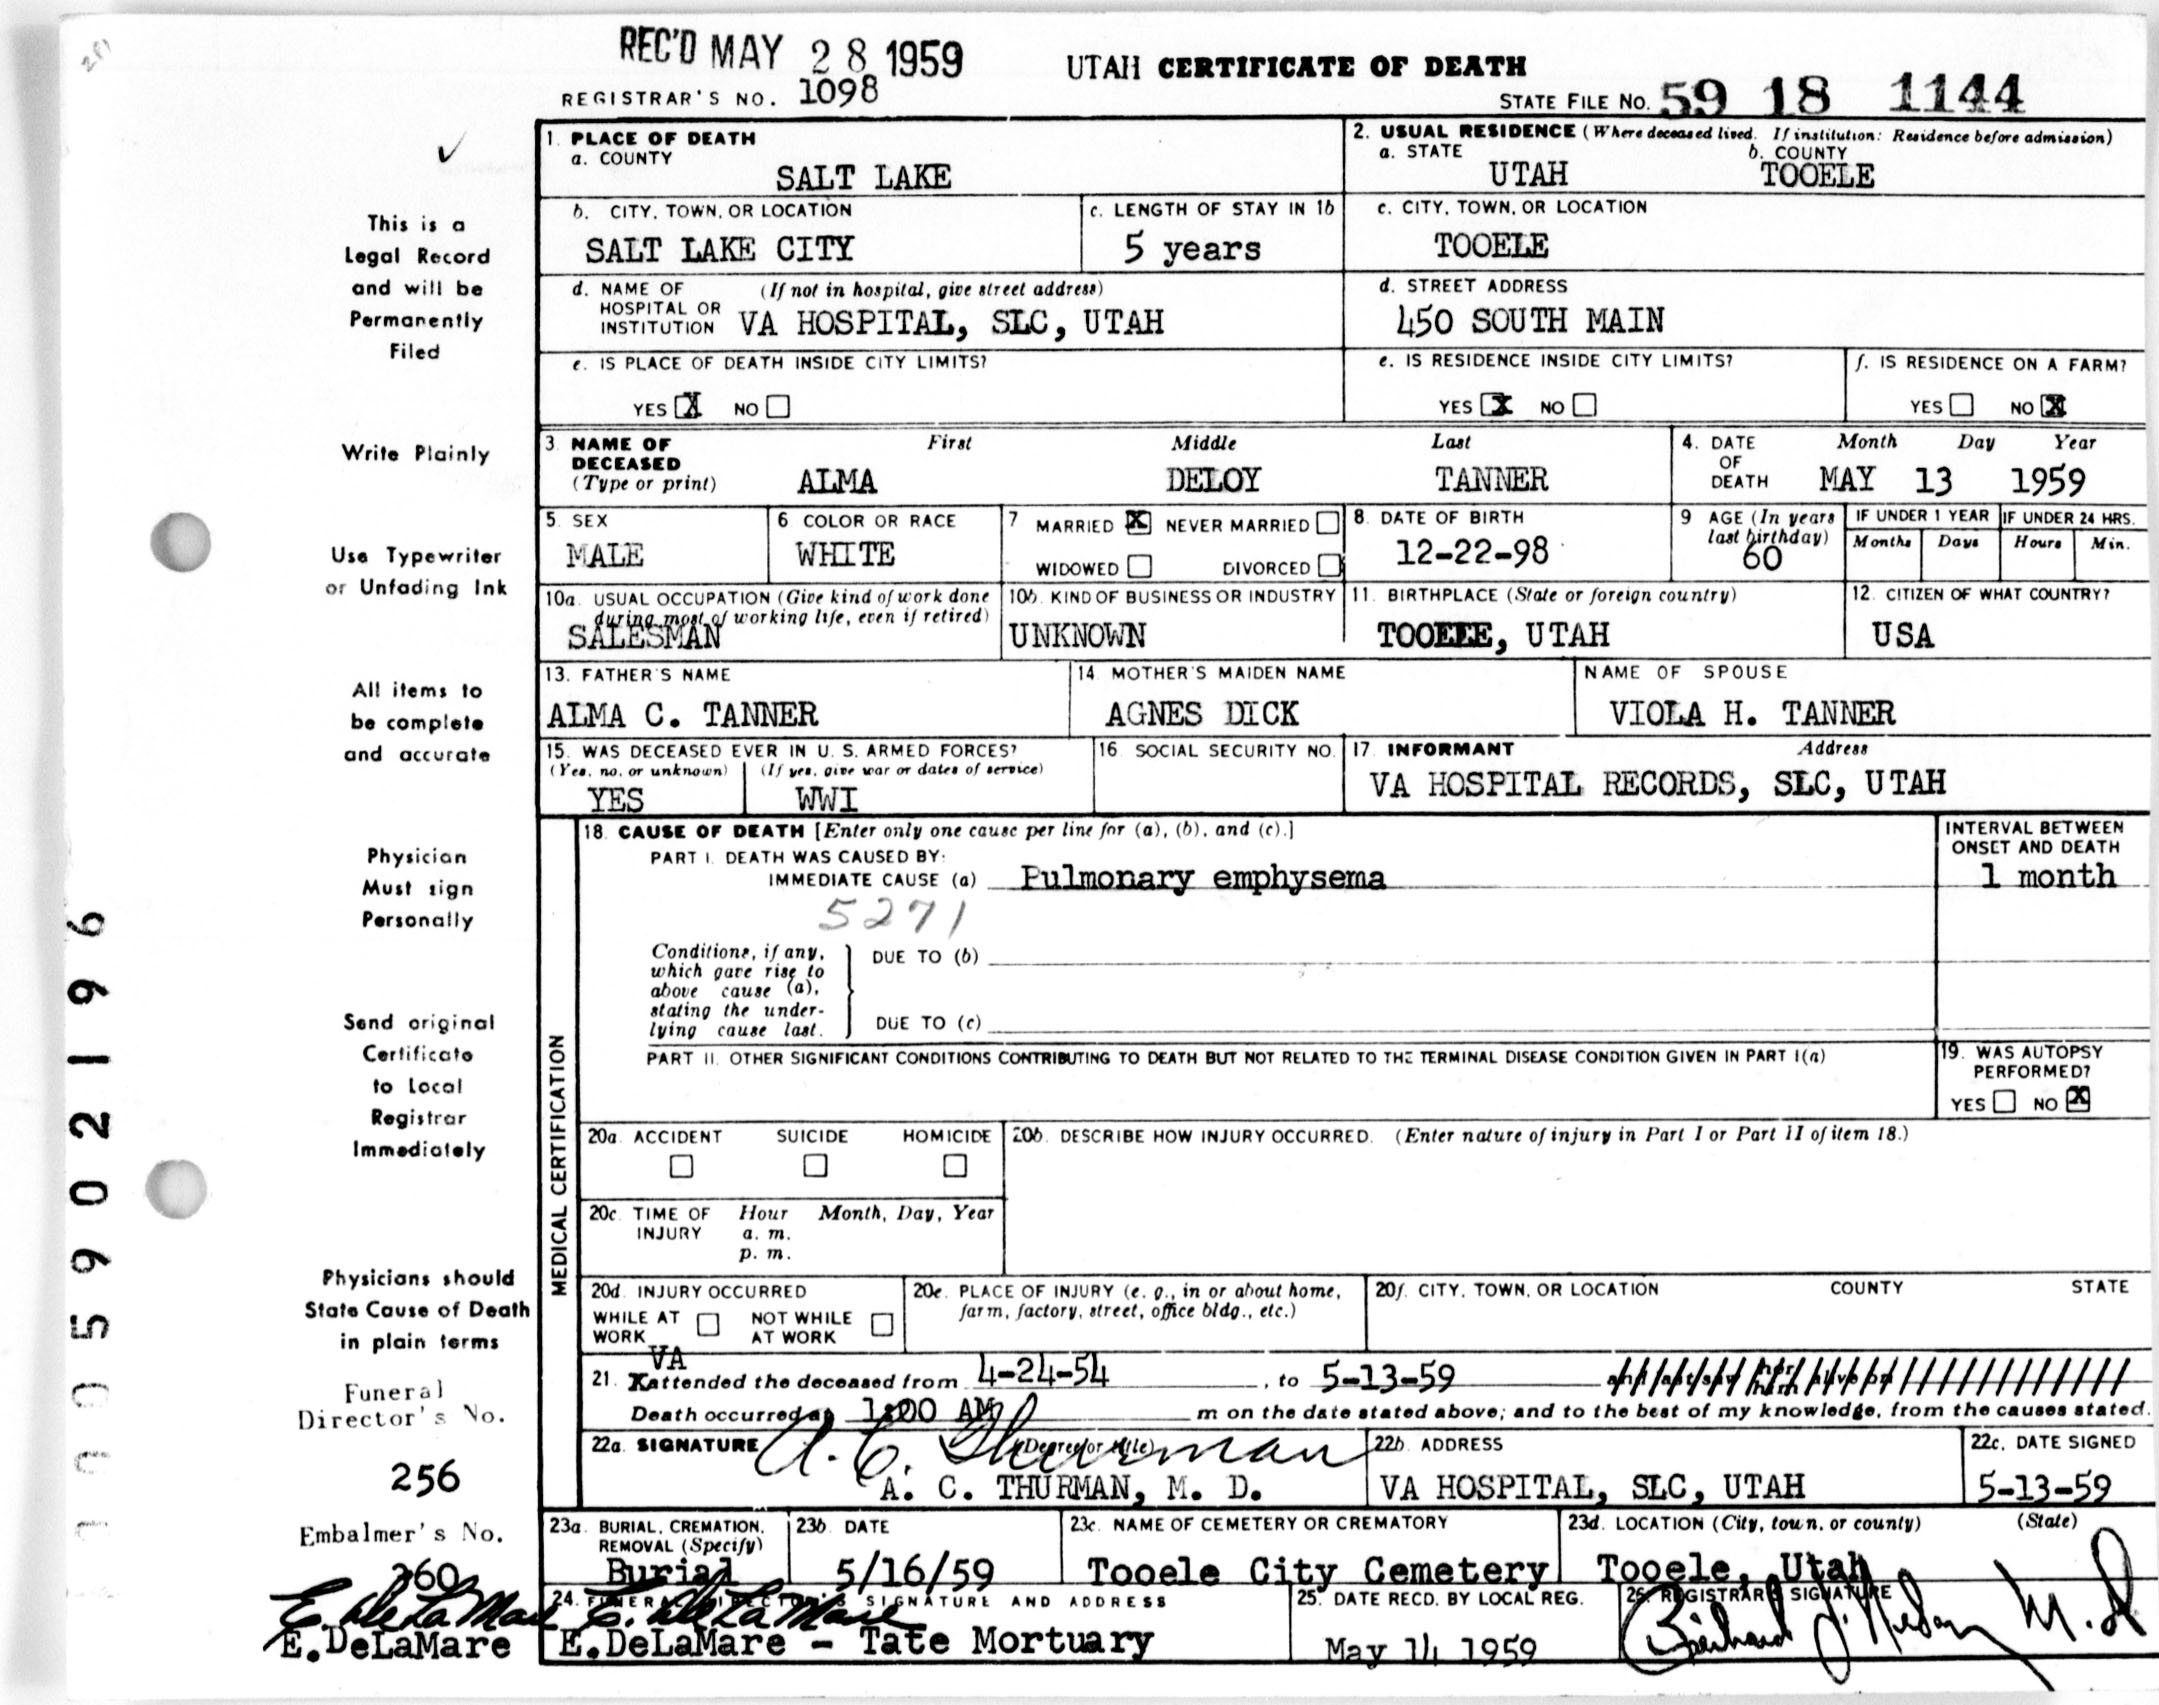 REC'D MAY 28 1959
UTAH CERTIFICATE OF DEATH
REGISTRAR'S NO. 1098
STATE FILE NO. 59 18 1144
This is a
Legal Record
and will be
Permanently
Filed
Write Plainly
Use Typewriter
or Unfading Ink
All items to
be complete
and accurate
Physician
Must sign
Personally
Send original
Certificate
to Local
Registrar
Immediately
Physicians should
State Cause of Death
in plain terms
Funeral
Director's No.
256
Embalmer's No.
260
E. DeLaMare
E.DeLaMare
005902196
1. PLACE OF DEATH
a. COUNTY
SALT LAKE
2. USUAL RESIDENCE (Where deceased lived. If institution: Residence before admission)
a. STATE b. COUNTY
UTAH TOOELE
b. CITY, TOWN, OR LOCATION
SALT LAKE CITY
c. LENGTH OF STAY IN 1b
5 years
c. CITY, TOWN, OR LOCATION
TOOELE
d. NAME OF (If not in hospital, give street address)
HOSPITAL OR
INSTITUTION VA HOSPITAL, SLC, UTAH
d. STREET ADDRESS
450 SOUTH MAIN
e. IS PLACE OF DEATH INSIDE CITY LIMITS?
YES X NO
e. IS RESIDENCE INSIDE CITY LIMITS?
YES X NO
f. IS RESIDENCE ON A FARM?
YES NO X
3 NAME OF First Middle Last
DECEASED
(Type or print) ALMA DELOY TANNER
4. DATE Month Day Year
OF
DEATH MAY 13 1959
5. SEX
MALE
6 COLOR OR RACE
WHITE
7 MARRIED X NEVER MARRIED
WIDOWED DIVORCED
8. DATE OF BIRTH
12-22-98
9 AGE (In years
last birthday)
60
IF UNDER 1 YEAR IF UNDER 24 HRS.
Months Days Hours Min.
10a. USUAL OCCUPATION (Give kind of work done
during most of working life, even if retired)
SALESMAN
10b. KIND OF BUSINESS OR INDUSTRY
UNKNOWN
11. BIRTHPLACE (State or foreign country)
TOOELE, UTAH
12. CITIZEN OF WHAT COUNTRY?
USA
13. FATHER'S NAME
ALMA C. TANNER
14 MOTHER'S MAIDEN NAME
AGNES DICK
NAME OF SPOUSE
VIOLA H. TANNER
15. WAS DECEASED EVER IN U. S. ARMED FORCES?
(Yes, no, or unknown) (If yes, give war or dates of service)
YES WWI
16 SOCIAL SECURITY NO.
17. INFORMANT Address
VA HOSPITAL RECORDS, SLC, UTAH
MEDICAL CERTIFICATION
18. CAUSE OF DEATH [Enter only one cause per line for (a), (b), and (c).]
PART I. DEATH WAS CAUSED BY:
IMMEDIATE CAUSE (a) Pulmonary emphysema
5271
INTERVAL BETWEEN
ONSET AND DEATH
1 month
Conditions, if any,
which gave rise to
above cause (a),
stating the under-
lying cause last.
DUE TO (b)
DUE TO (c)
PART II. OTHER SIGNIFICANT CONDITIONS CONTRIBUTING TO DEATH BUT NOT RELATED TO THE TERMINAL DISEASE CONDITION GIVEN IN PART I(a)
19. WAS AUTOPSY
PERFORMED?
YES NO X
20a. ACCIDENT SUICIDE HOMICIDE
20b. DESCRIBE HOW INJURY OCCURRED. (Enter nature of injury in Part I or Part II of item 18.)
20c. TIME OF Hour Month, Day, Year
INJURY a. m.
p. m.
20d. INJURY OCCURRED
WHILE AT NOT WHILE
WORK AT WORK
20e. PLACE OF INJURY (e. g., in or about home,
farm, factory, street, office bldg., etc.)
20f. CITY, TOWN, OR LOCATION COUNTY STATE
VA
21. X attended the deceased from 4-24-54, to 5-13-59 and last saw her him alive on
Death occurred at 1:00 AM m on the date stated above; and to the best of my knowledge, from the causes stated.
22a. SIGNATURE (Degree or title)
A. C. Thurman
A. C. THURMAN, M. D.
22b. ADDRESS
VA HOSPITAL, SLC, UTAH
22c. DATE SIGNED
5-13-59
23a. BURIAL, CREMATION,
REMOVAL (Specify)
Burial
23b. DATE
5/16/59
23c. NAME OF CEMETERY OR CREMATORY
Tooele City Cemetery
23d. LOCATION (City, town, or county) (State)
Tooele, Utah
24. FUNERAL DIRECTOR'S SIGNATURE AND ADDRESS
E. DeLaMare
E.DeLaMare - Tate Mortuary
25. DATE RECD. BY LOCAL REG.
May 14 1959
26. REGISTRAR'S SIGNATURE
M.D